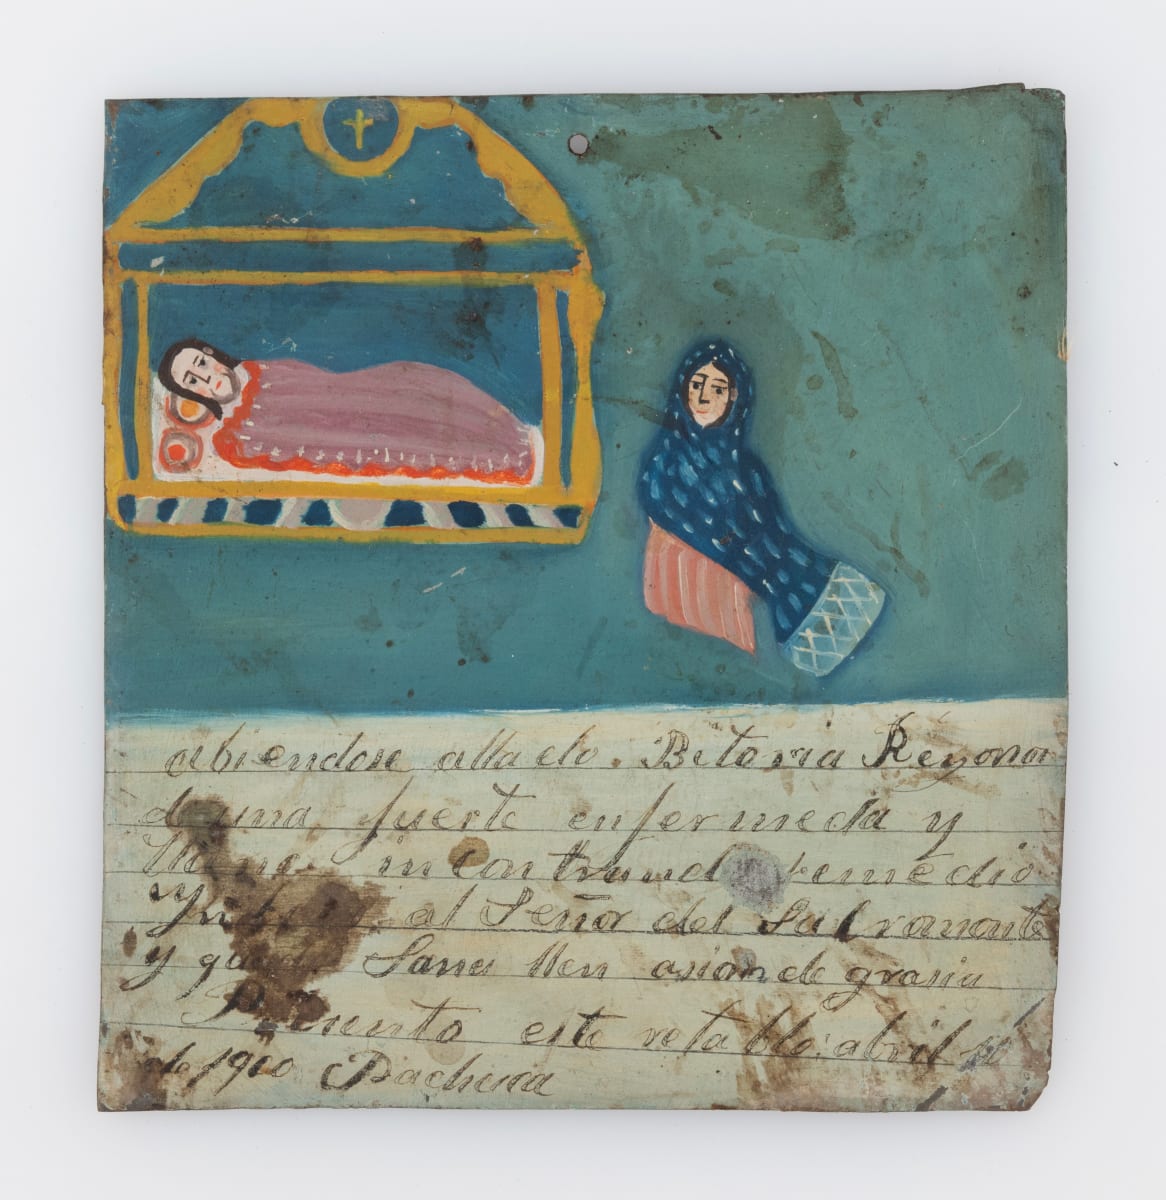 abiendose allado. Bitoria Reyona
de una fuerte enfermeda y
incontrand remedio
al Señor del Salramonte
y Sana en asion de grasia
Presento este retablo: abril
de 1910 Pachuca